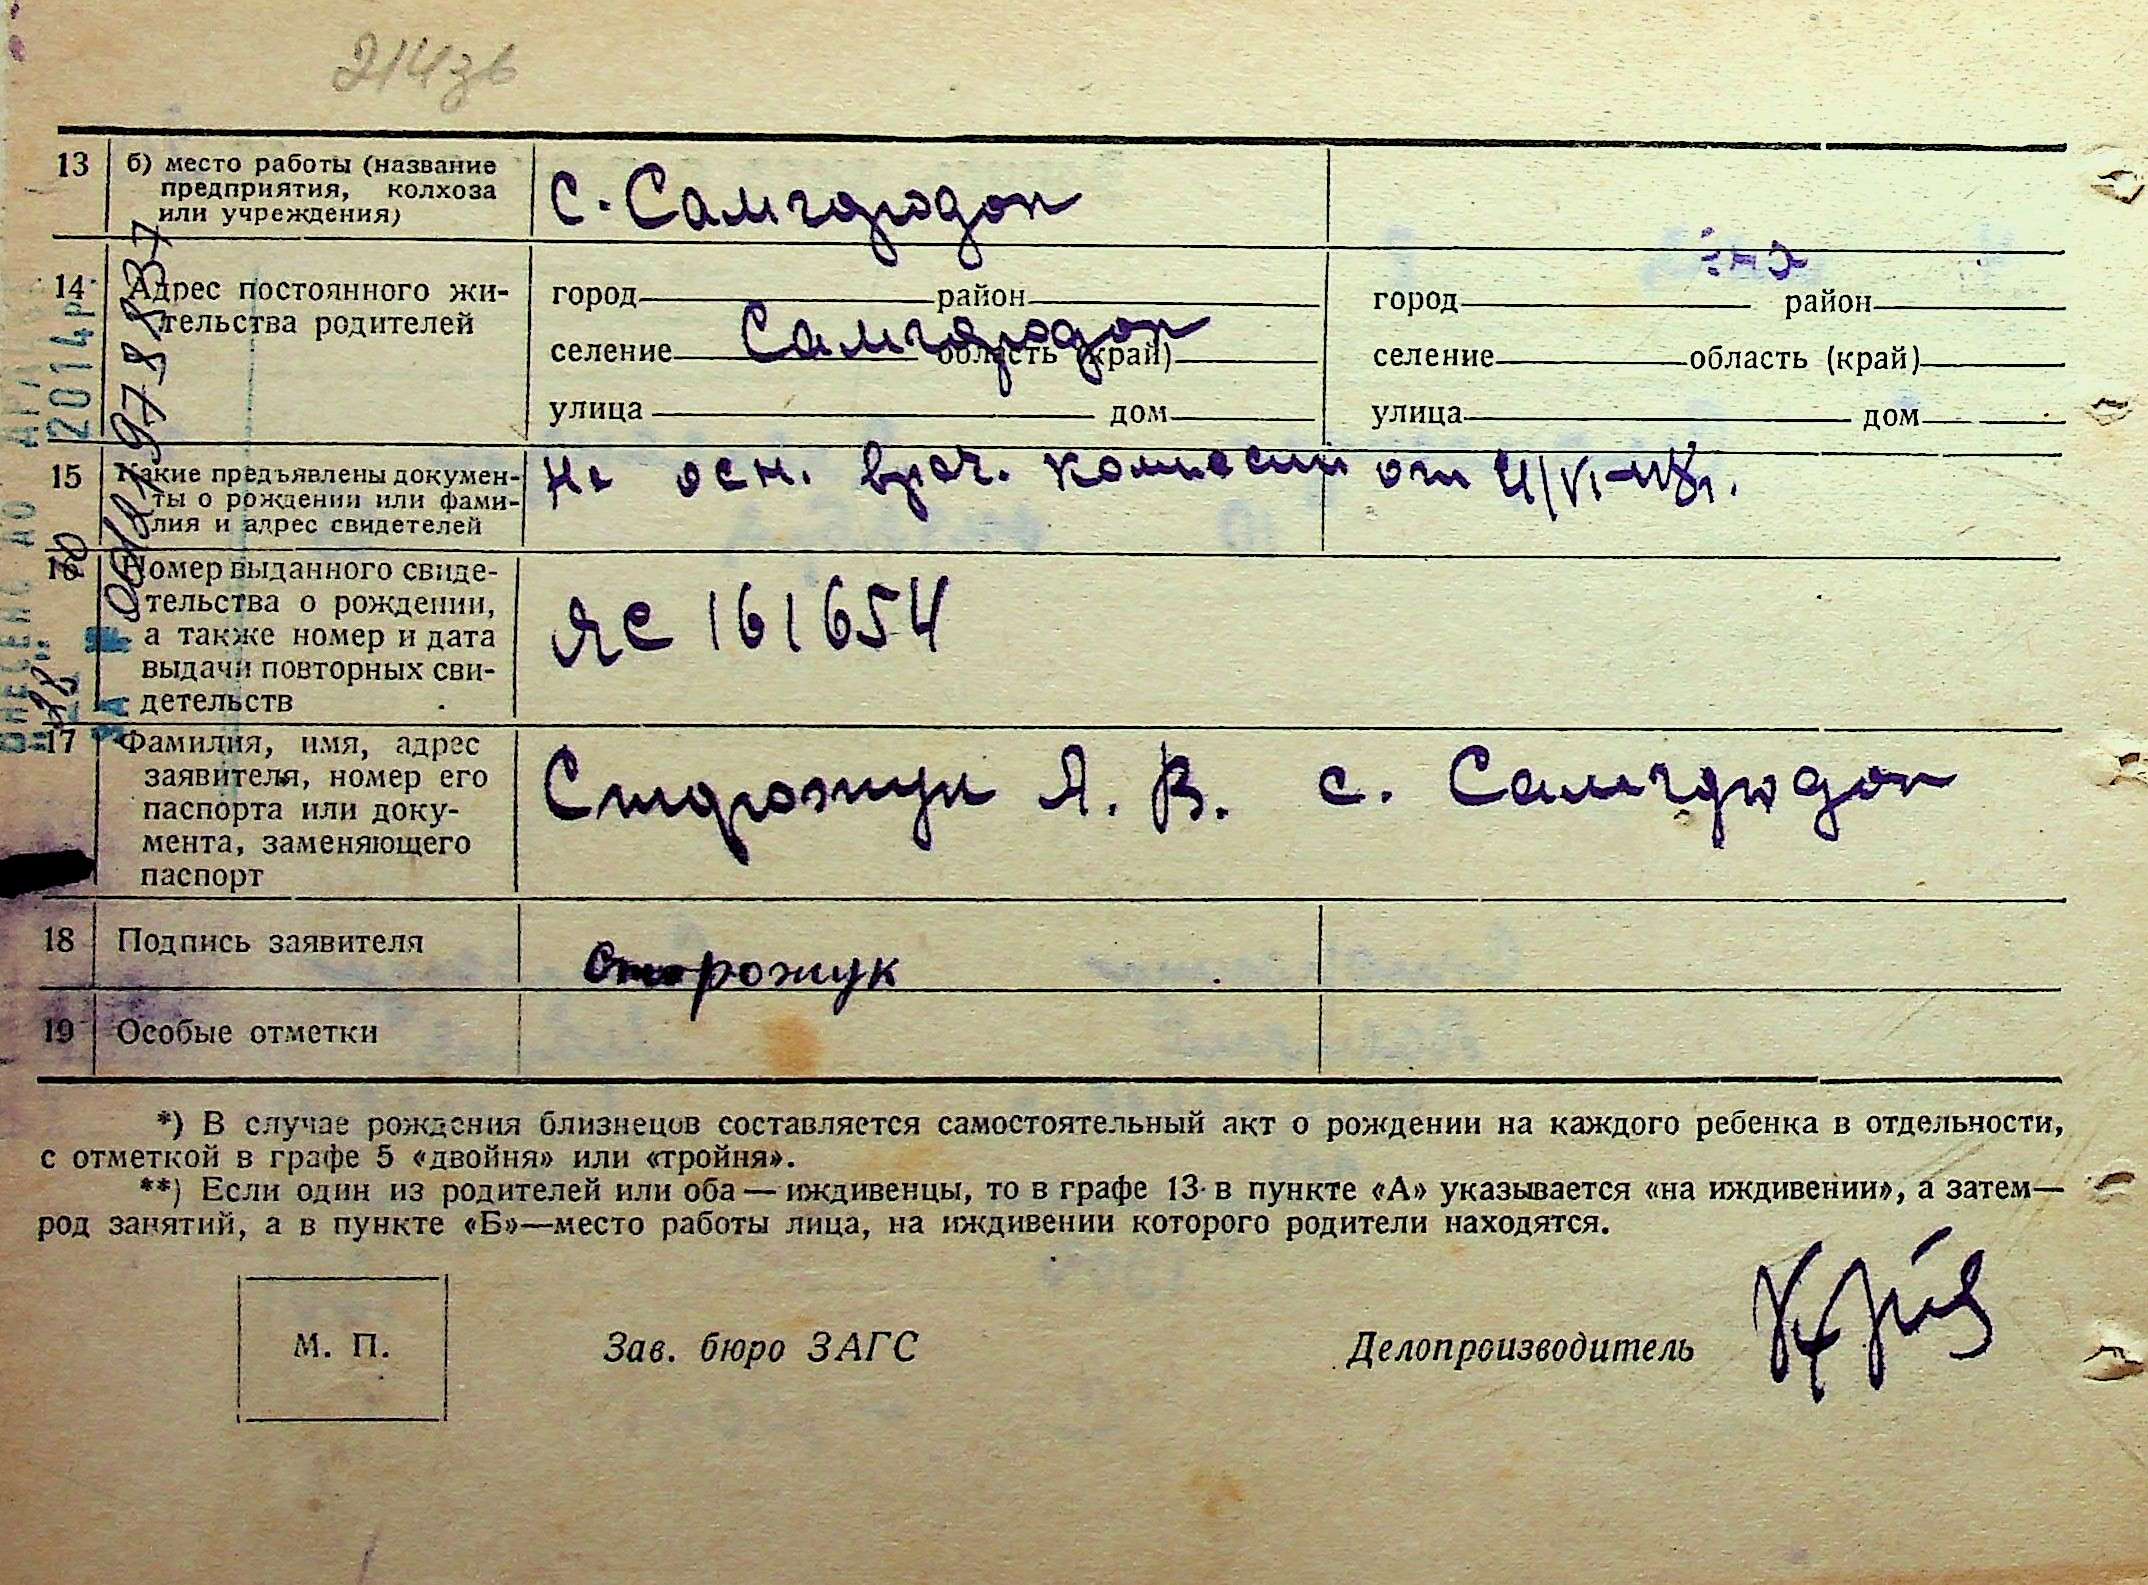 214зв
13 б) место работы (название
предприятия, колхоза
или учреждения)
с. Самгородок
14 Адрес постоянного жи-
тельства родителей
город район
селение Самгородок область (край)
улица дом
город район
селение область (край)
улица дом
15 Какие предъявлены докумен-
ты о рождении или фами-
лия и адрес свидетелей
На осн. врач. комиссии от
16 Номер выданного свиде-
тельства о рождении,
а также номер и дата
выдачи повторных сви-
детельств
ЯС 161654
17 Фамилия, имя, адрес
заявителя, номер его
паспорта или доку-
мента, заменяющего
паспорт
Сторожук Я. В. с. Самгородок
18 Подпись заявителя
Сторожук
19 Особые отметки
*) В случае рождения близнецов составляется самостоятельный акт о рождении на каждого ребенка в отдельности,
с отметкой в графе 5 «двойня» или «тройня».
**) Если один из родителей или оба — иждивенцы, то в графе 13 в пункте «А» указывается «на иждивении», а затем—
род занятий, а в пункте «Б»—место работы лица, на иждивении которого родители находятся.
М. П.
Зав. бюро ЗАГС
Делопроизводитель